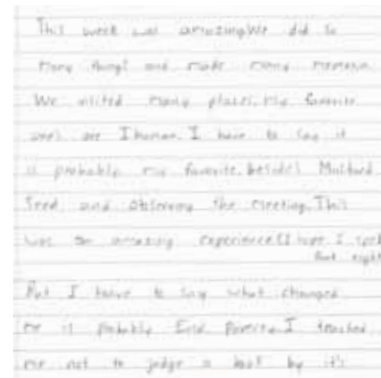 This week was amazing. We did so
many things and made many memories.
We visited many places. my favorite
ones are Ihuman. I have to say it
is probably my favorite. besides Mustard
Seed and observing the meeting. This
was an amazing experience (I hope I spelt
that right
But I have to say what changed
me is probably End Poverty. I teached
me not to judge a book by it's